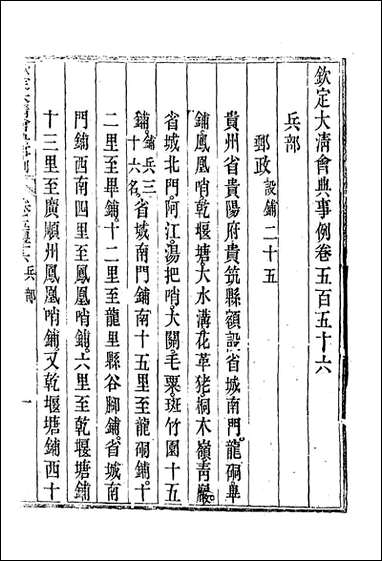 欽定大清會典事例卷五百五十六
兵部
郵政設鋪二十五
貴州省貴陽府貴筑縣額設省城南門龍硐畢
鋪鳳凰哨乾堰塘大水溝花革猪桐木嶺青巖
省城北門阿江湯把哨大關毛栗斑竹園十五
鋪鋪兵三十六名省城南門鋪南十五里至龍硐鋪十
二里至畢鋪十二里至龍里縣谷腳鋪省城南
門鋪西南四里至鳳凰哨鋪六里至乾堰塘鋪
十三里至廣順州鳳凰哨鋪又乾堰塘鋪西十
兵部
一